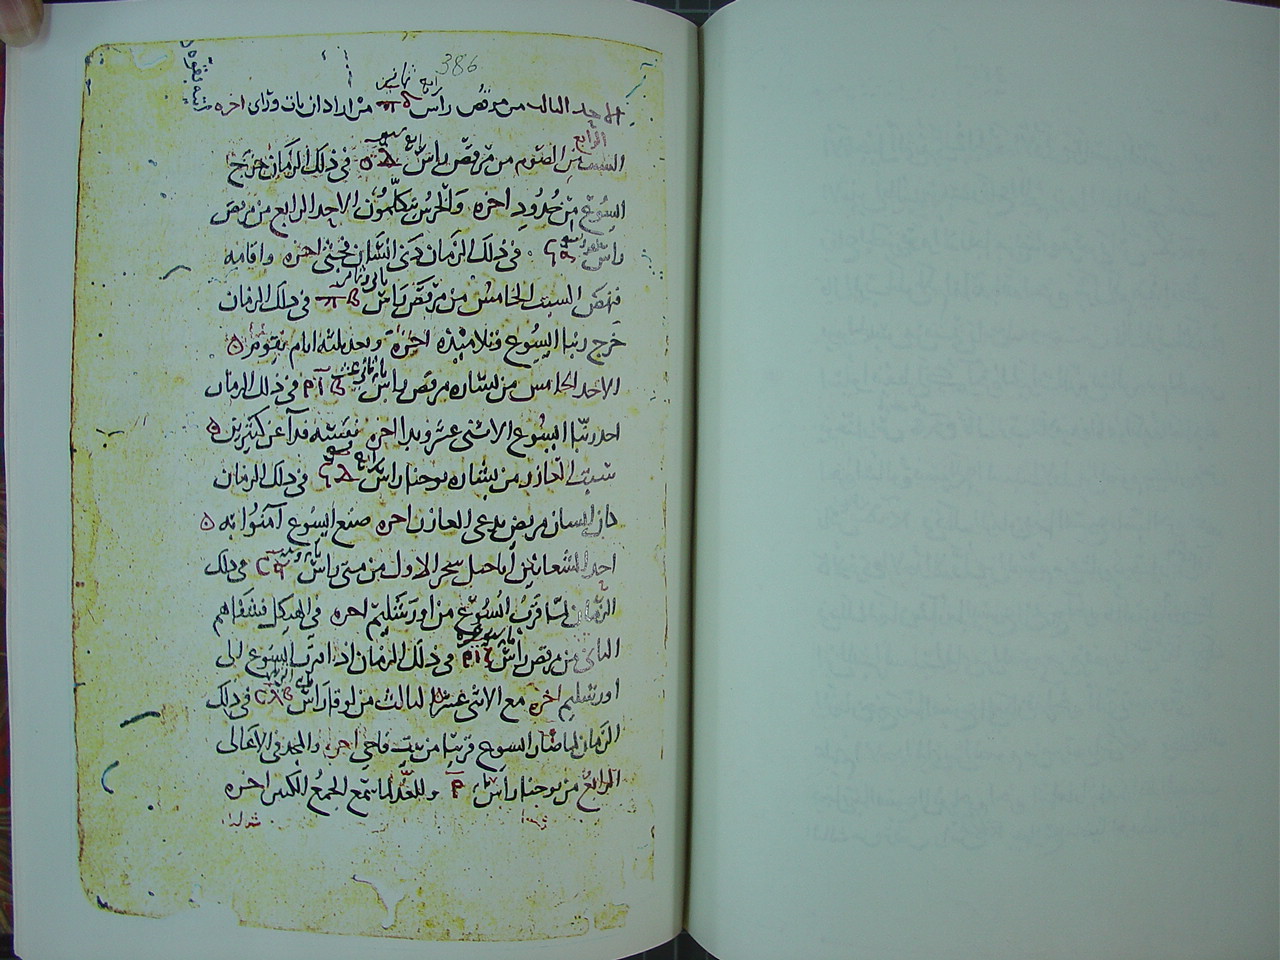 386
رابع ثماني
الاحد الثالث من مرقص راس من اراد ان يات وراي اخره
الرابع
السبت من الصوم من مرقص راس في ذلك الزمان خرج
اليسوع من حدود اخره والخرس يتكلمون الاحد الرابع من مرقص
راس في ذلك الزمان دنى انسان فجثى اخره واقامه
فنهض السبت الخامس من مرقص راس في ذلك الزمان
خرج ربنا اليسوع وتلاميذه اخره وبعد ثلثه ايام يقوم
الاحد الخامس من بشاره مرقص راس في ذلك الزمان
اخد ربنا اليسوع الاثنى عشر وبدا اخره نفسه فدآ عن كثيرين
سبت العازر من بشاره يوحنا راس في ذلك الزمان
كان انسان مريض يدعى العازر اخره صنع اليسوع آمنوا به
احد الشعانين اناجيل سحر الاول من متى راس في ذلك
الزمان لما قرب اليسوع من اورشليم اخره في الهيكل فشفاهم
الثاني من مرقص راس في ذلك الزمان اذا قرب اليسوع الى
اورشليم اخره مع الاثنى عشر الثالث من لوقا راس في ذلك
الزمان لما صار اليسوع قريبا من بيت فاجي اخره والمجد في الاعالى
الرابع من يوحنا راس وللغد لما سمع الجمع الكبير اخره